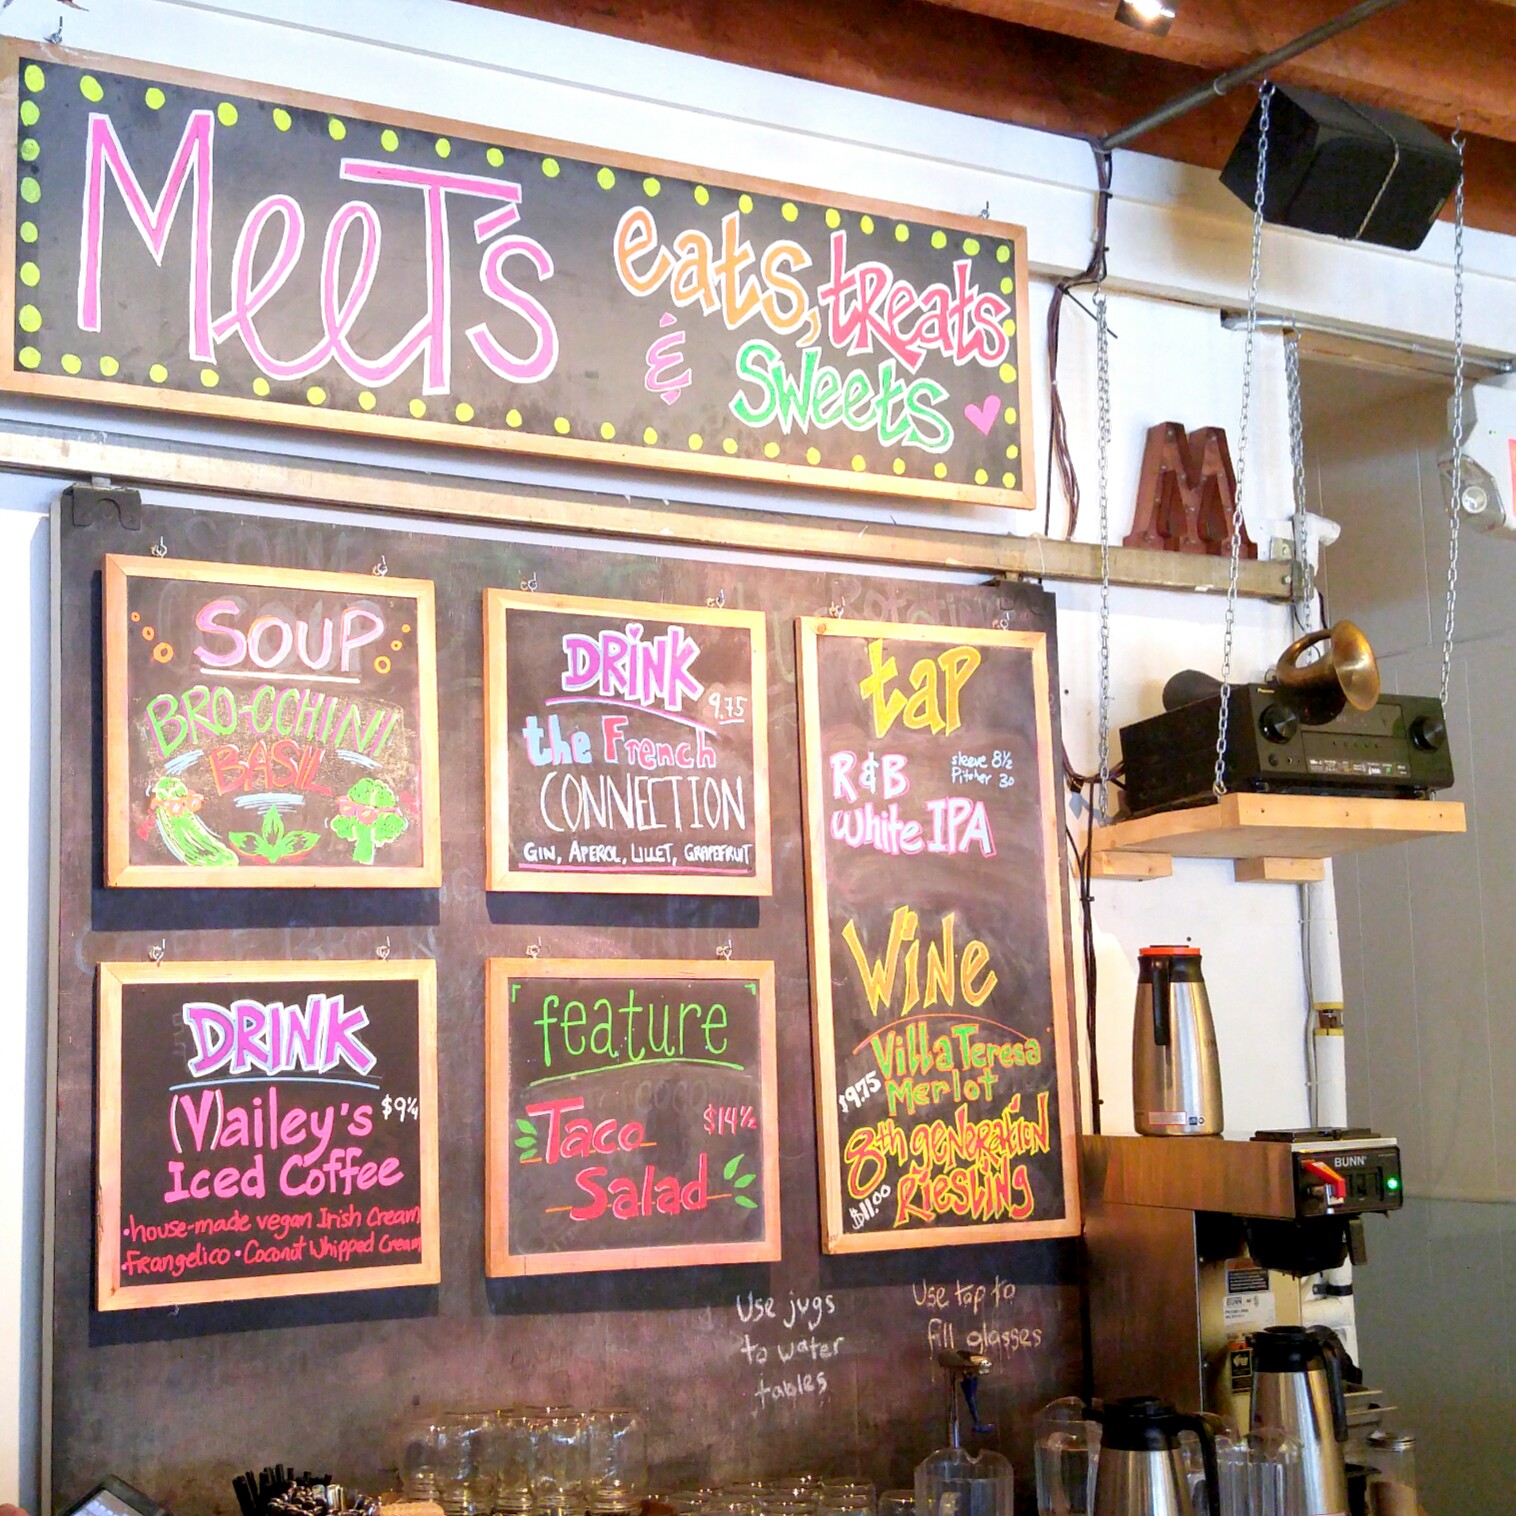 MeeT's
eats, treats
& Sweets
M
SOUP
BRO-CCHINI
BASIL
DRINK
9.75
the French
CONNECTION
GIN, APEROL, LILLET, GRAPEFRUIT
tap
R&B
sleeve 8½
Pitcher 30
White IPA
WINE
Villa Teresa
Merlot
$9.75
8th generation
Riesling
$11.00
DRINK
(V)ailey's
$9¼
Iced Coffee
•house-made vegan Irish Cream
•Frangelico •Coconut Whipped Cream
feature
Taco
$14½
Salad
Use jugs
to water
tables
Use tap to
fill glasses
Panasonic
BUNN